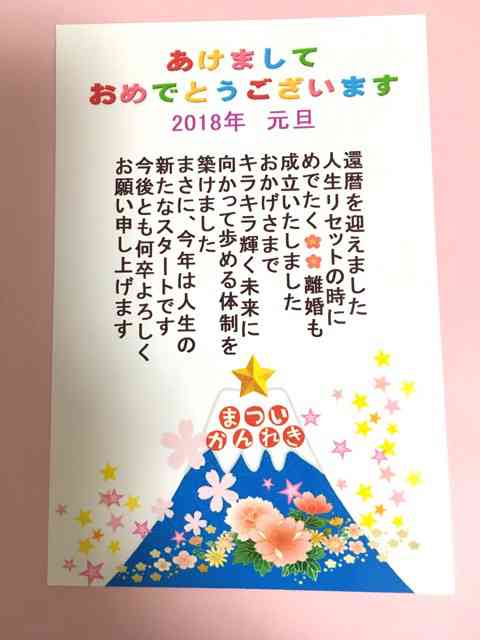 あけまして
おめでとうございます
2018年 元旦
還暦を迎えました
人生リセットの時に
めでたく🌸🌸離婚も
成立いたしました
おかげさまで
キラキラ輝く未来に
向かって歩める体制を
築けました
まさに、今年は人生の
新たなスタートです
今後とも何卒よろしく
お願い申し上げます
まつい
かんれき